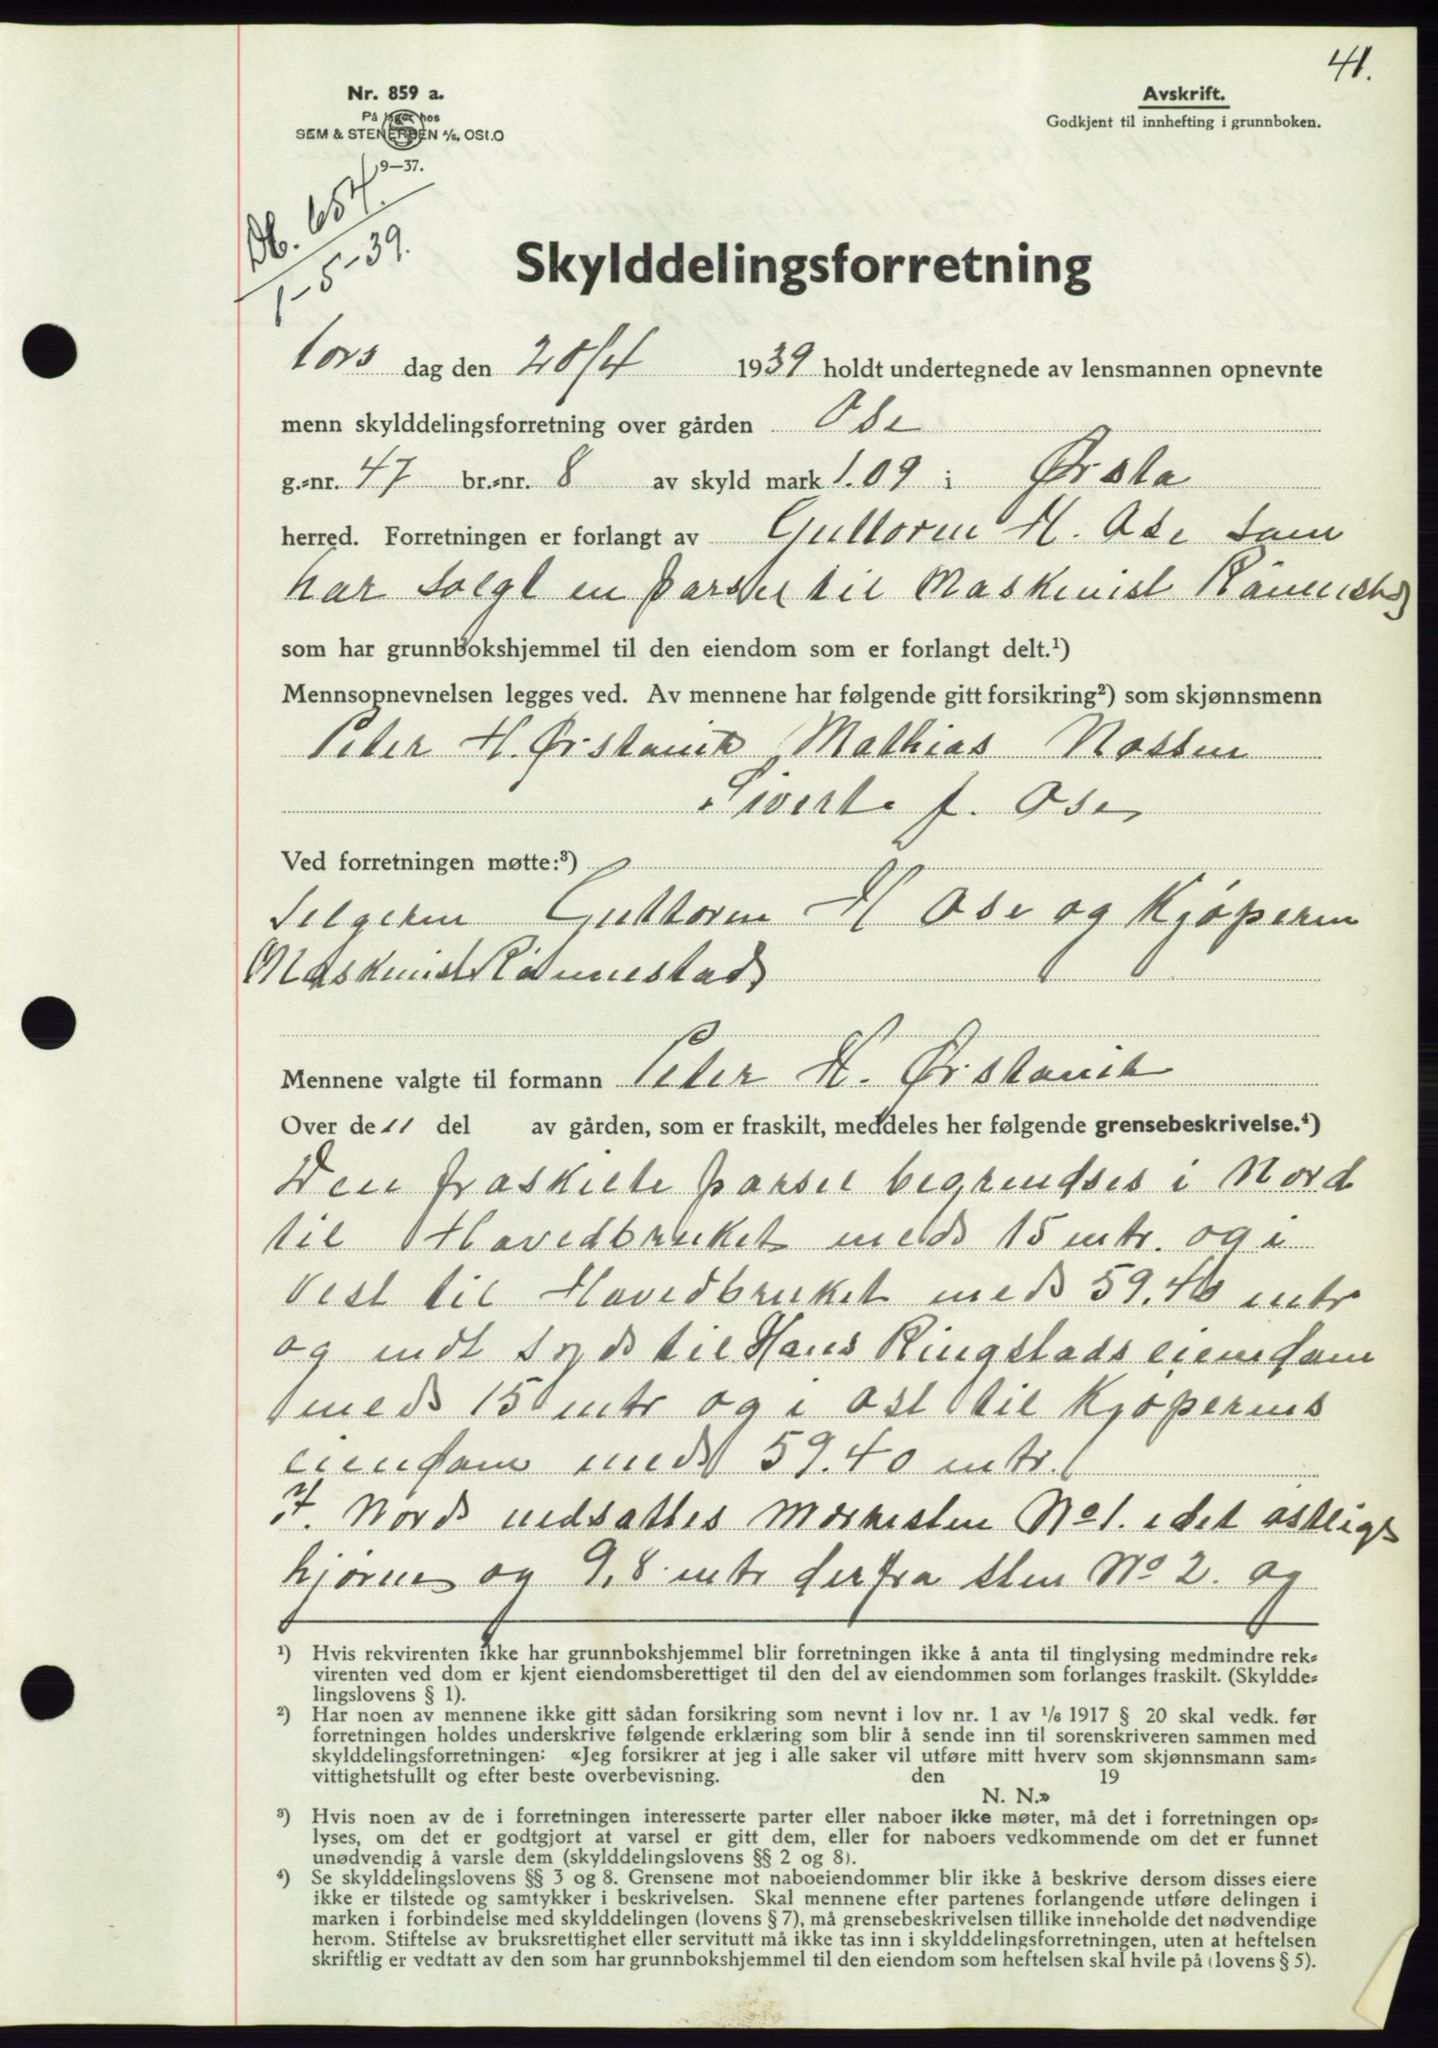 41.
Nr. 859 a.
På lager hos
SEM & STENERSEN A/S, OSLO
9—37.
Avskrift.
Godkjent til innhefting i grunnboken.
Db. 654.
1-5-39.
Skylddelingsforretning
tors dag den 20/4 1939 holdt undertegnede av lensmannen opnevnte
menn skylddelingsforretning over gården Ose
g.-nr. 47 br.-nr. 8 av skyld mark 1.09 i Ørsta
herred. Forretningen er forlangt av Guttorm H. Ose som
har solgt en parsel til Maskinist Rånnestad
som har grunnbokshjemmel til den eiendom som er forlangt delt.¹)
Mennsopnevnelsen legges ved. Av mennene har følgende gitt forsikring²) som skjønnsmenn
Peter H. Ørstavik Mathias Nossen
Sivert J. Ose
Ved forretningen møtte:³)
Selgeren Guttorm H Ose og Kjøperen
Maskinist Rånnestad
Mennene valgte til formann Peter H. Ørstavik
Over de 11 del av gården, som er fraskilt, meddeles her følgende grensebeskrivelse.⁴)
Den fraskilte parsel begrendses i Nord
til Havedbruket med 15 mtr. og i
vest til Hovedbruket med 59.40 mtr
og mot syd til Hans Ringstads eiendom
med 15 mtr og i ost til Kjøperens
eiendom med 59.40 mtr.
I. Nord nedsattes Merkesten No 1. i det ostlige
hjørne og 9,8 mtr derfra sten No 2. og
¹) Hvis rekvirenten ikke har grunnbokshjemmel blir forretningen ikke å anta til tinglysing medmindre rek-
virenten ved dom er kjent eiendomsberettiget til den del av eiendommen som forlanges fraskilt. (Skyldde-
lingslovens § 1).
²) Har noen av mennene ikke gitt sådan forsikring som nevnt i lov nr. 1 av 1/6 1917 § 20 skal vedk. før
forretningen holdes underskrive følgende erklæring som blir å sende inn til sorenskriveren sammen med
skylddelingsforretningen: «Jeg forsikrer at jeg i alle saker vil utføre mitt hverv som skjønnsmann sam-
vittighetsfullt og efter beste overbevisning. den 19
N. N.»
³) Hvis noen av de i forretningen interesserte parter eller naboer ikke møter, må det i forretningen op-
lyses, om det er godtgjort at varsel er gitt dem, eller for naboers vedkommende om det er funnet
unødvendig å varsle dem (skylddelingslovens §§ 2 og 8).
⁴) Se skylddelingslovens §§ 3 og 8. Grensene mot naboeiendommer blir ikke å beskrive dersom disses eiere
ikke er tilstede og samtykker i beskrivelsen. Skal mennene efter partenes forlangende utføre delingen i
marken i forbindelse med skylddelingen (lovens § 7), må grensebeskrivelsen tillike inneholde det nødvendige
herom. Stiftelse av bruksrettighet eller servitutt må ikke tas inn i skylddelingsforretningen, uten at heftelsen
skriftlig er vedtatt av den som har grunnbokshjemmel til den eiendom som heftelsen skal hvile på (lovens § 5).